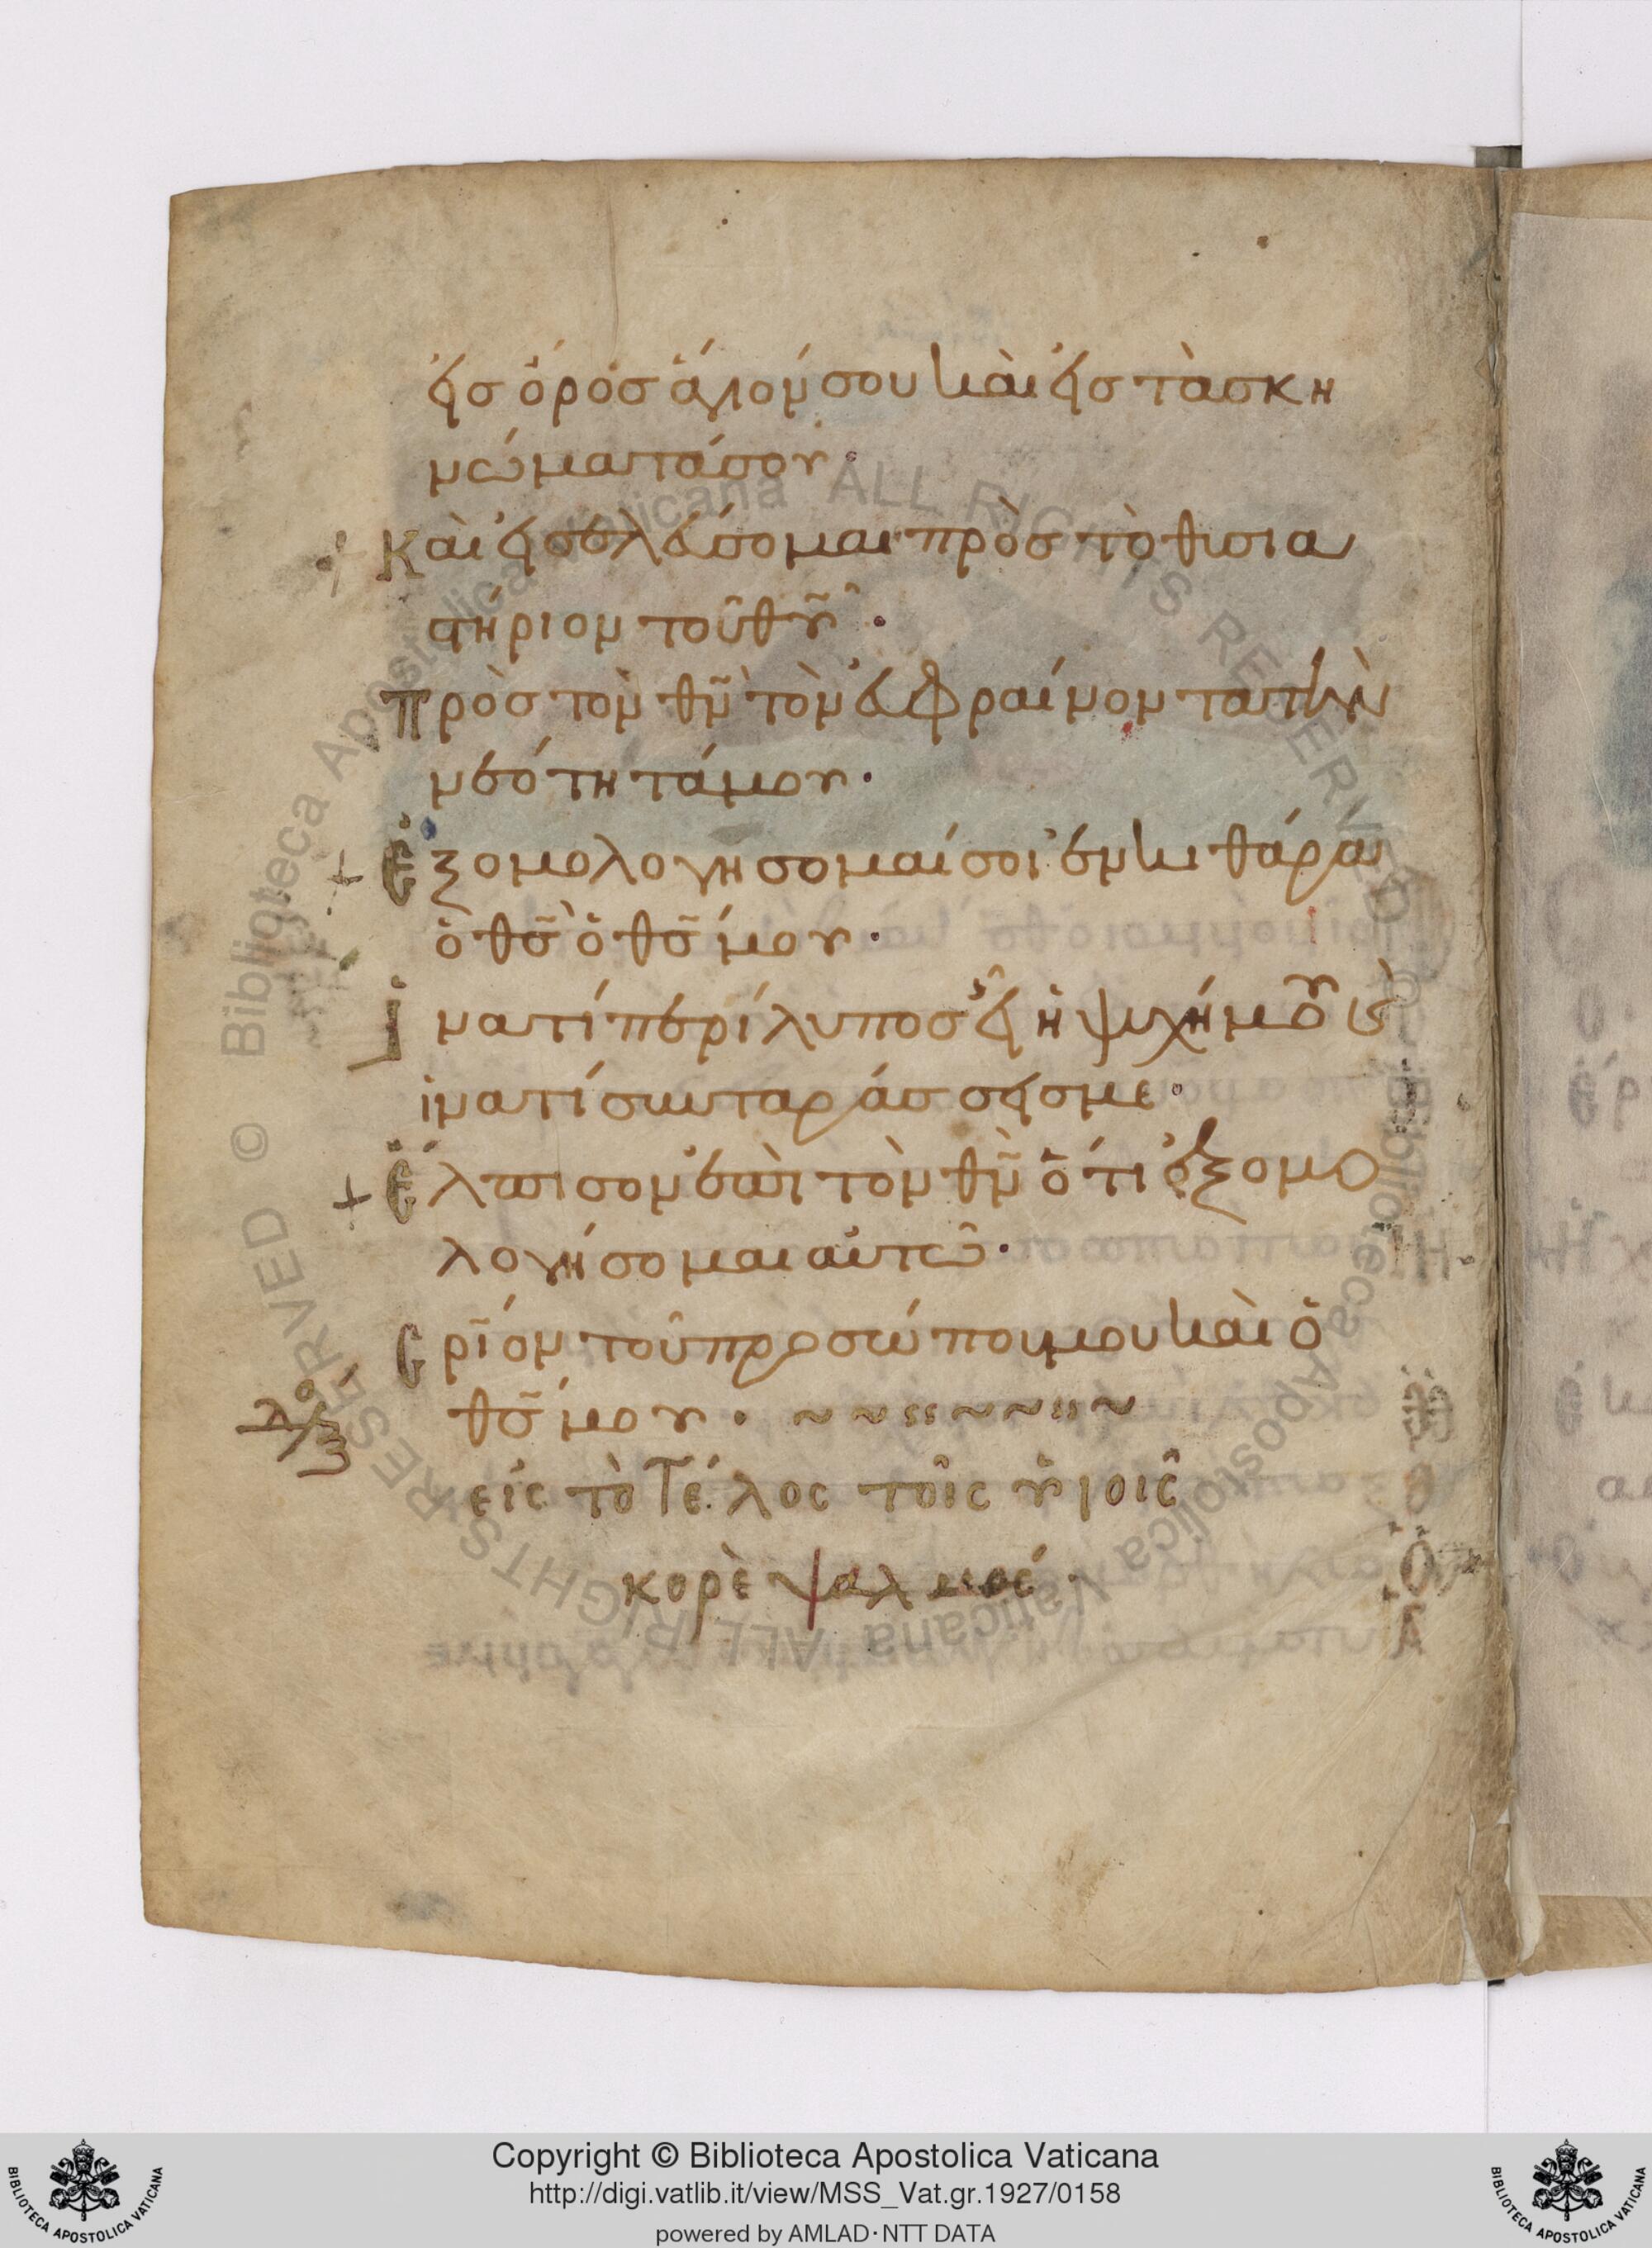 εἰς ὄρος ἅγιόν σου καὶ εἰς τὰ σκη
νώματά σου·
Καὶ εἰσελεύσομαι πρὸς τὸ θισια
στήριον τοῦ θυ̃·
πρὸς τὸν θν̃ τὸν εὐφραίνοντα τὴν
νεότητά μου·
Ἐξομολογησομαί σοι ἐν κιθάρα
ὁ θς̃ ὁ θς̃ μου·
ἱνατί περίλυπος εἶ ἡ ψυχή μου καὶ
ἱνατί συνταράσσεις με·
Ἔλπισον ἐπὶ τὸν θν̃ ὅτι ἐξομο
λογήσομαι αὐτῶ·
σρ̃ίον τοῦ προσώπου μου καὶ ὁ
θς̃ μου·
εἰς τὸ Τέλος τοῖς ὑιοῖς
κορὲ ψαλμος
Copyright © Biblioteca Apostolica Vaticana
http://digi.vatlib.it/view/MSS_Vat.gr.1927/0158
powered by AMLAD·NTT DATA
BIBLIOTECA APOSTOLICA VATICANA
BIBLIOTECA APOSTOLICA VATICANA
© Biblioteca Apostolica Vaticana ALL RIGHTS RESERVED
© Biblioteca Apostolica Vaticana ALL RIGHTS RESERVED